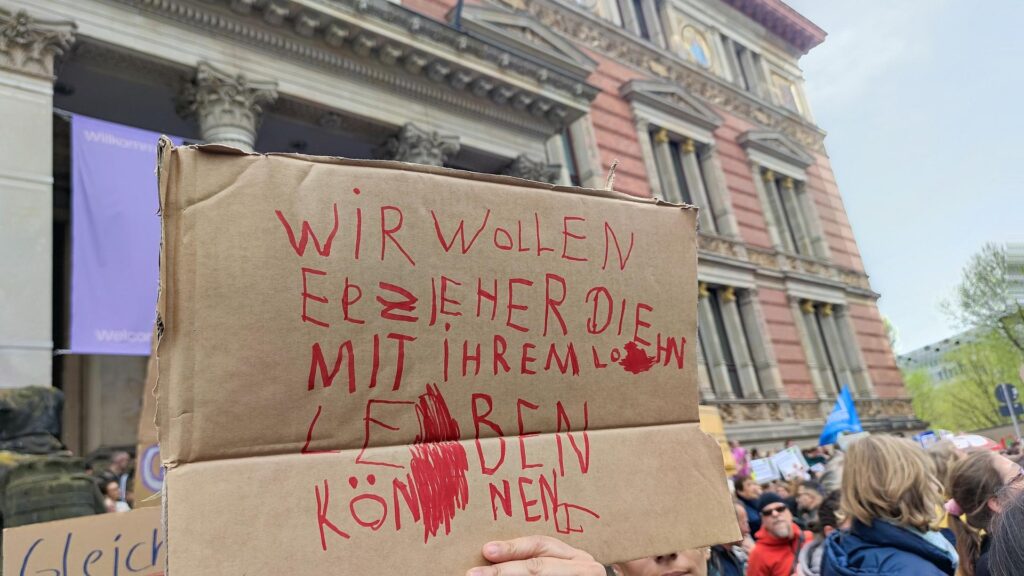 Willkomm
Welcom
WIR WOLLEN
ERZIEHER DIE
MIT IHREM LOHN
LEBEN
KÖNNEN
Gleich